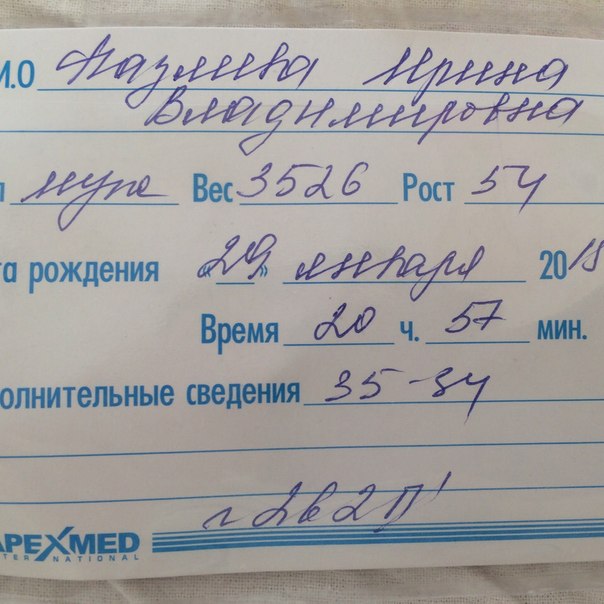 И.О Назлиева Ирина
Владимировна
л муж Вес 3526 Рост 54
та рождения «29» января 2015
Время 20 ч. 57 мин.
полнительные сведения 35-34
г 2в2п
APEXMED
INTERNATIONAL